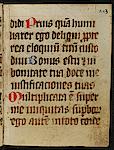 didi Prius quã humi
liarer ego deliqui ppte
rea eloquiũ tuũ custo
diui Bonus es tu in
bonitate tua doce me
iustificationes tuas
Multiplicata ē super
me iniquitas supbor
ego autē in toto corde